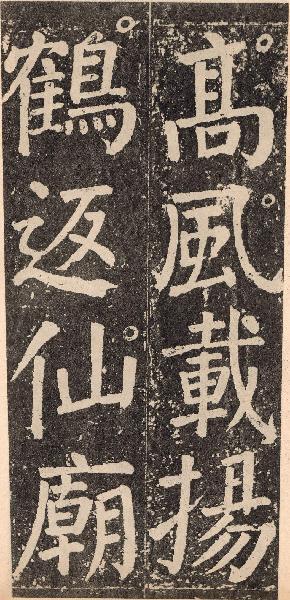 高風載揚
鶴返仙廟